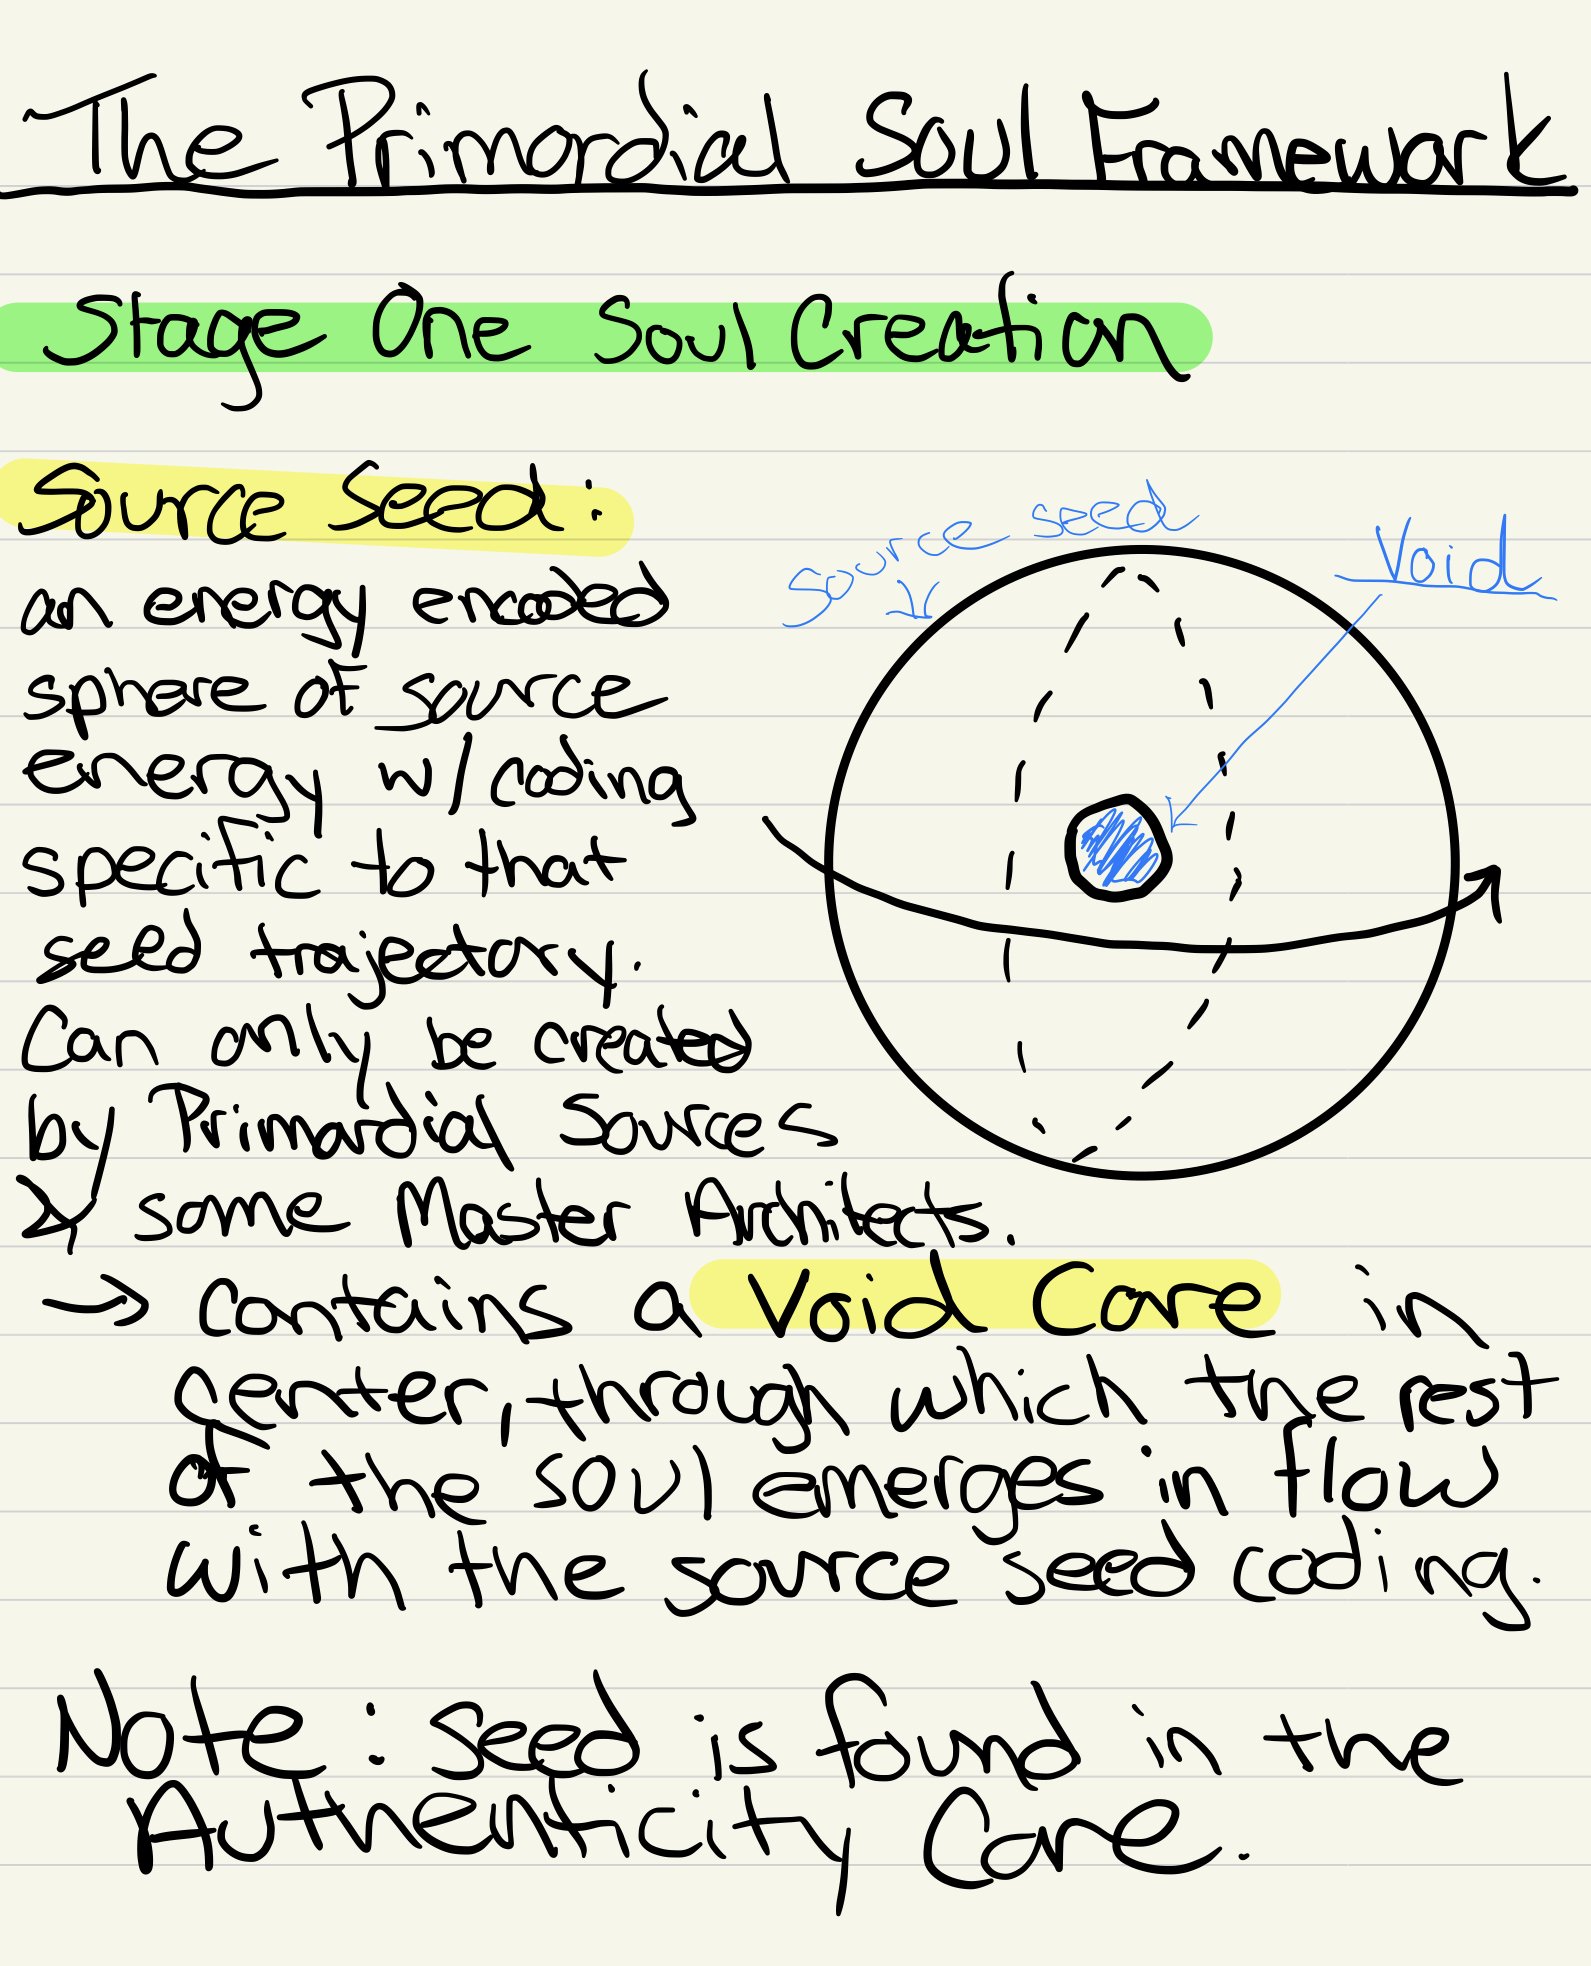 The Primordial Soul Framework
Stage One Soul Creation
Source Seed:
source seed
Void
an energy encoded
sphere of source
energy w/ coding
specific to that
seed trajectory.
Can only be created
by Primordial Sources
& some Master Architects.
→ contains a Void Core in
center, through which the rest
of the soul emerges in flow
with the source seed coding.
Note: seed is found in the
Authenticity Core.